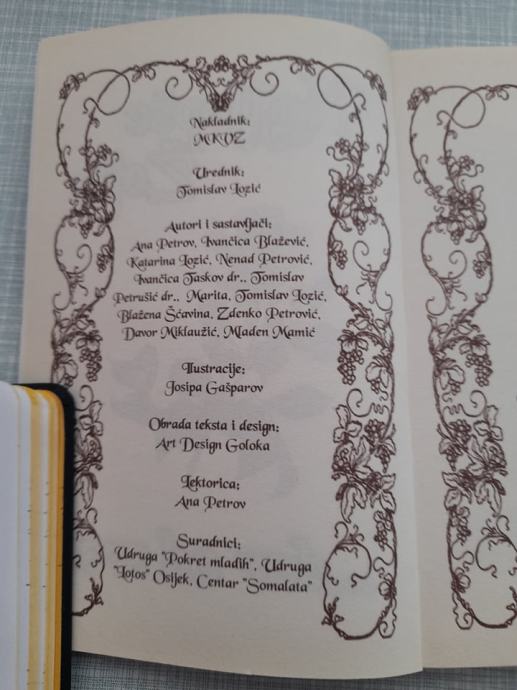 Nakladnik:
MKVZ
Urednik:
Tomislav Lozić
Autori i sastavljači:
Ana Petrov, Ivančica Blažević,
Katarina Lozić, Nenad Petrović,
Ivančica Taskov dr., Tomislav
Petrušić dr., Marita, Tomislav Lozić,
Blažena Šćavina, Zdenko Petrović,
Davor Miklaužić, Mladen Mamić
Ilustracije:
Josipa Gašparov
Obrada teksta i design:
Art Design Goloka
Lektorica:
Ana Petrov
Suradnici:
Udruga "Pokret mladih", Udruga
"Lotos" Osijek, Centar "Somalata"